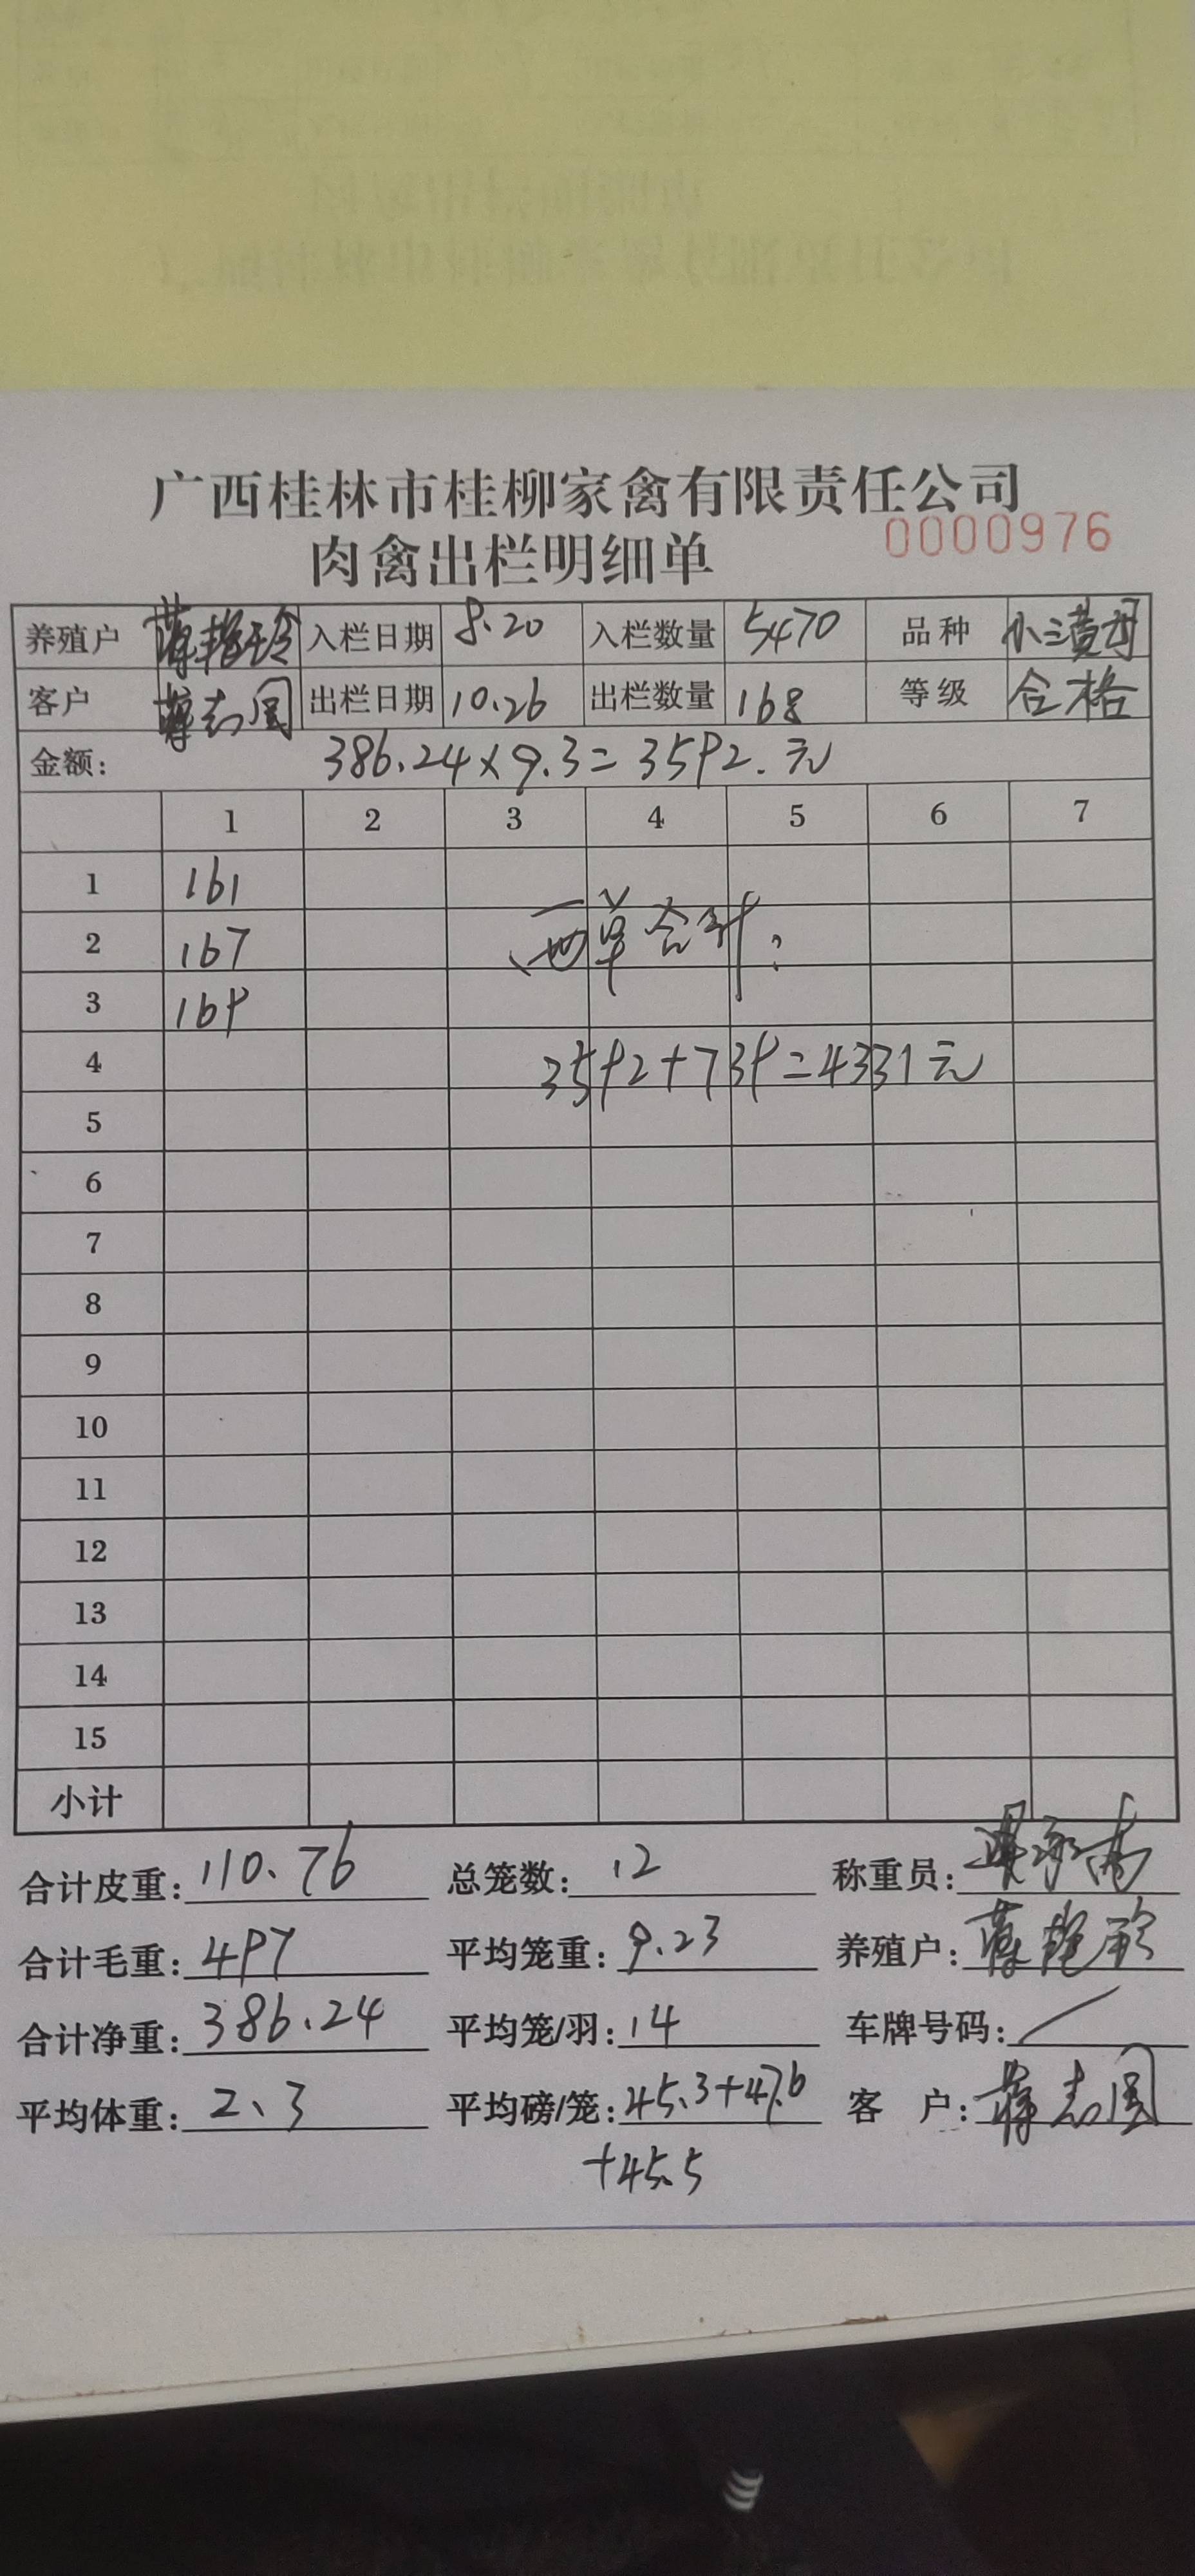 广西桂林市桂柳家禽有限责任公司
肉禽出栏明细单 0000976
养殖户 蒋艳玲 入栏日期 8.20 入栏数量 5470 品种 小三黄母
客户 蒋志国 出栏日期 10.26 出栏数量 168 等级 合格
金额: 386.24×9.3=3592.元
1 2 3 4 5 6 7
1 161
2 167 两单合计:
3 169
4 3592+739=4331元
5
6
7
8
9
10
11
12
13
14
15
小计
合计皮重: 110.76 总笼数: 12 称重员:
合计毛重: 497 平均笼重: 9.23 养殖户: 蒋艳玲
合计净重: 386.24 平均笼/羽: 14 车牌号码: /
平均体重: 2.3 平均磅/笼: 45.3+47.6 客 户: 蒋志国
+45.5